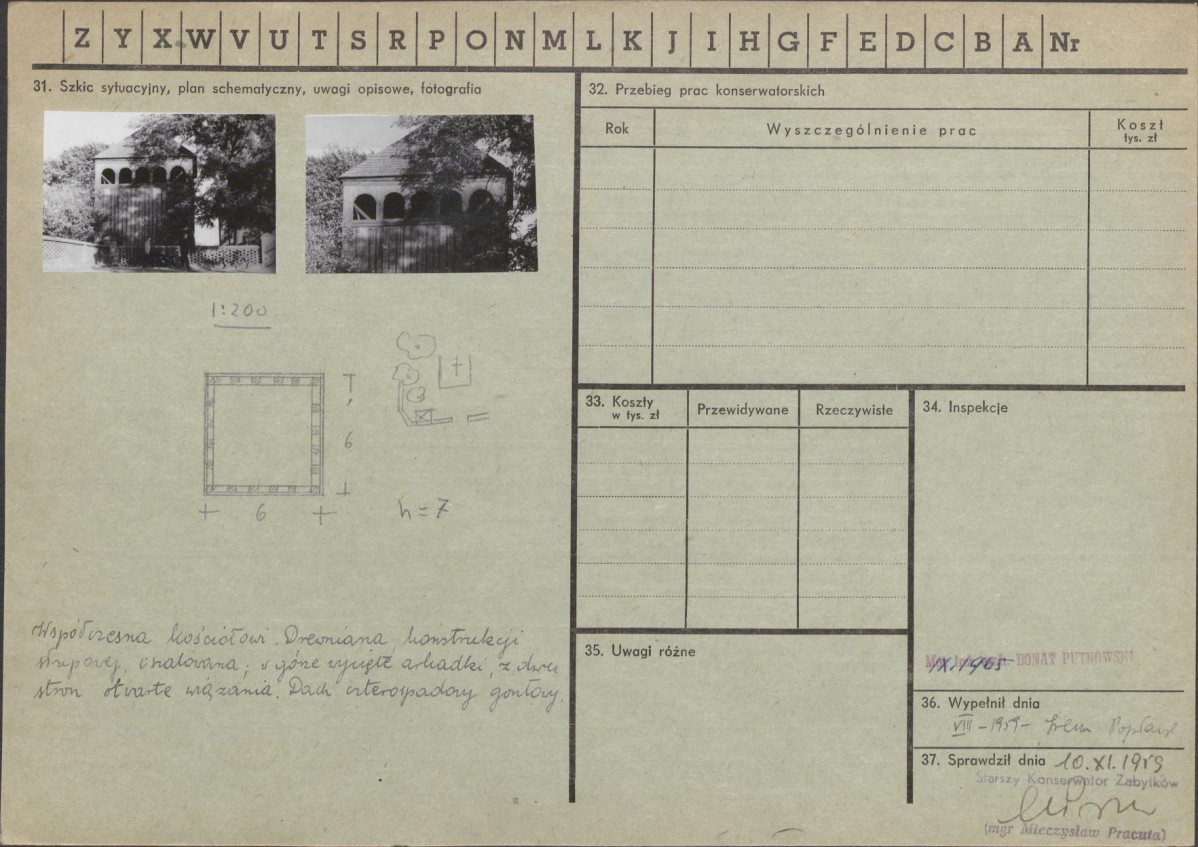 Z Y X W V U T S R P O N M L K J I H G F E D C B A Nr
31. Szkic sytuacyjny, plan schematyczny, uwagi opisowe, fotografia
1:200
6
6
h = 7
Współczesna kościołowi. Drewniana, konstrukcji
słupowej, oszalowana; u góry wycięte arkadki, z dwu
stron otwarte wiązania. Dach czterospadowy gontowy.
32. Przebieg prac konserwatorskich
Rok
Wyszczególnienie prac
Koszt
tys. zł
33. Koszty
w tys. zł
Przewidywane
Rzeczywiste
34. Inspekcje
DONAT PUTKOWSKI
IX.1965
35. Uwagi różne
36. Wypełnił dnia
VIII - 1959 -
37. Sprawdził dnia 10.XI.1959
Starszy Konserwator Zabytków
(mgr Mieczysław Pracuta)